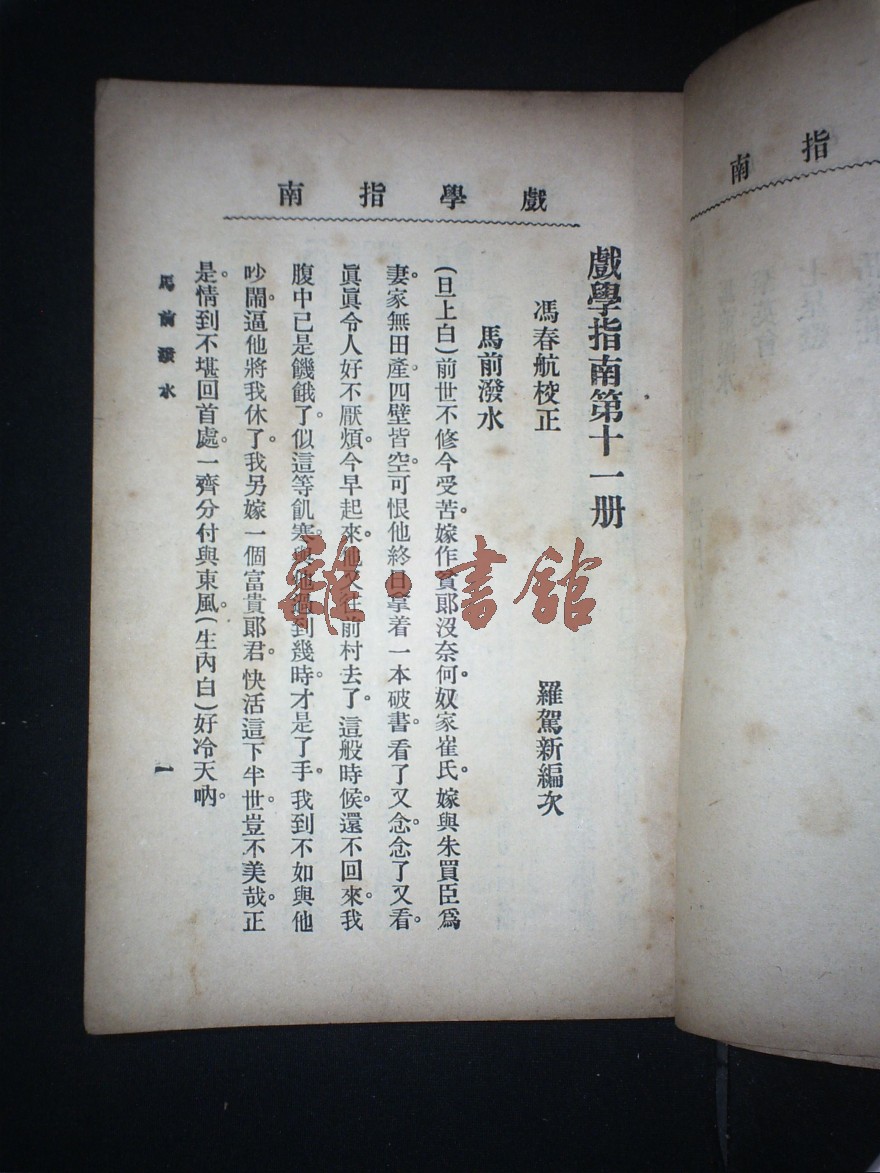 戲學指南
戲學指南第十一册
馮春航校正
羅駕新編次
馬前潑水
(旦上白)前世不修今受苦。嫁作貧郎沒奈何。奴家崔氏。嫁與朱買臣爲
妻。家無田產。四壁皆空。可恨他終日拿着一本破書。看了又念。念了又看。
眞眞令人好不厭煩。今早起來。他又往前村去了。這般時候。還不回來。我
腹中已是饑餓了。似這等飢寒。與他過到幾時。才是了手。我到不如與他
吵鬧。逼他將我休了。我另嫁一個富貴郞君。快活這下半世。豈不美哉。正
是。情到不堪回首處。一齊分付與東風。(生內白)好冷天吶。
馬前潑水
一
指南
雜·書館